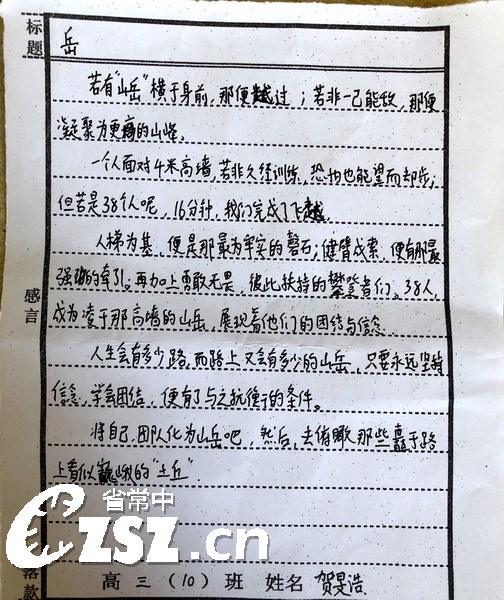 标题
岳
若有“山岳”横于身前，那便越过；若非一己能致，那便
凝聚为更高的山峰。
一个人面对4米高墙，若非久经训练，恐怕也能望而却步；
但若是38个人呢，16分钟，我们完成了飞越。
人梯为基，便是那最为牢实的磐石；健臂成索，便有那最
强劲的牵引。再加上勇敢无畏、彼此扶持的攀登者们。38人，
成为凌于那高墙的山岳，展现着他们的团结与信念.
人生会有多少路，而路上又会有多少的山岳，只要永远坚持
信念，学会团结，便有了与之抗衡的条件。
将自己、团队化为山岳吧，然后，去俯瞰那些矗于路
上看似巍峨的“土丘”
感言
省常中
CZSZ.cn
落款
高三（10）班 姓名 贺是浩